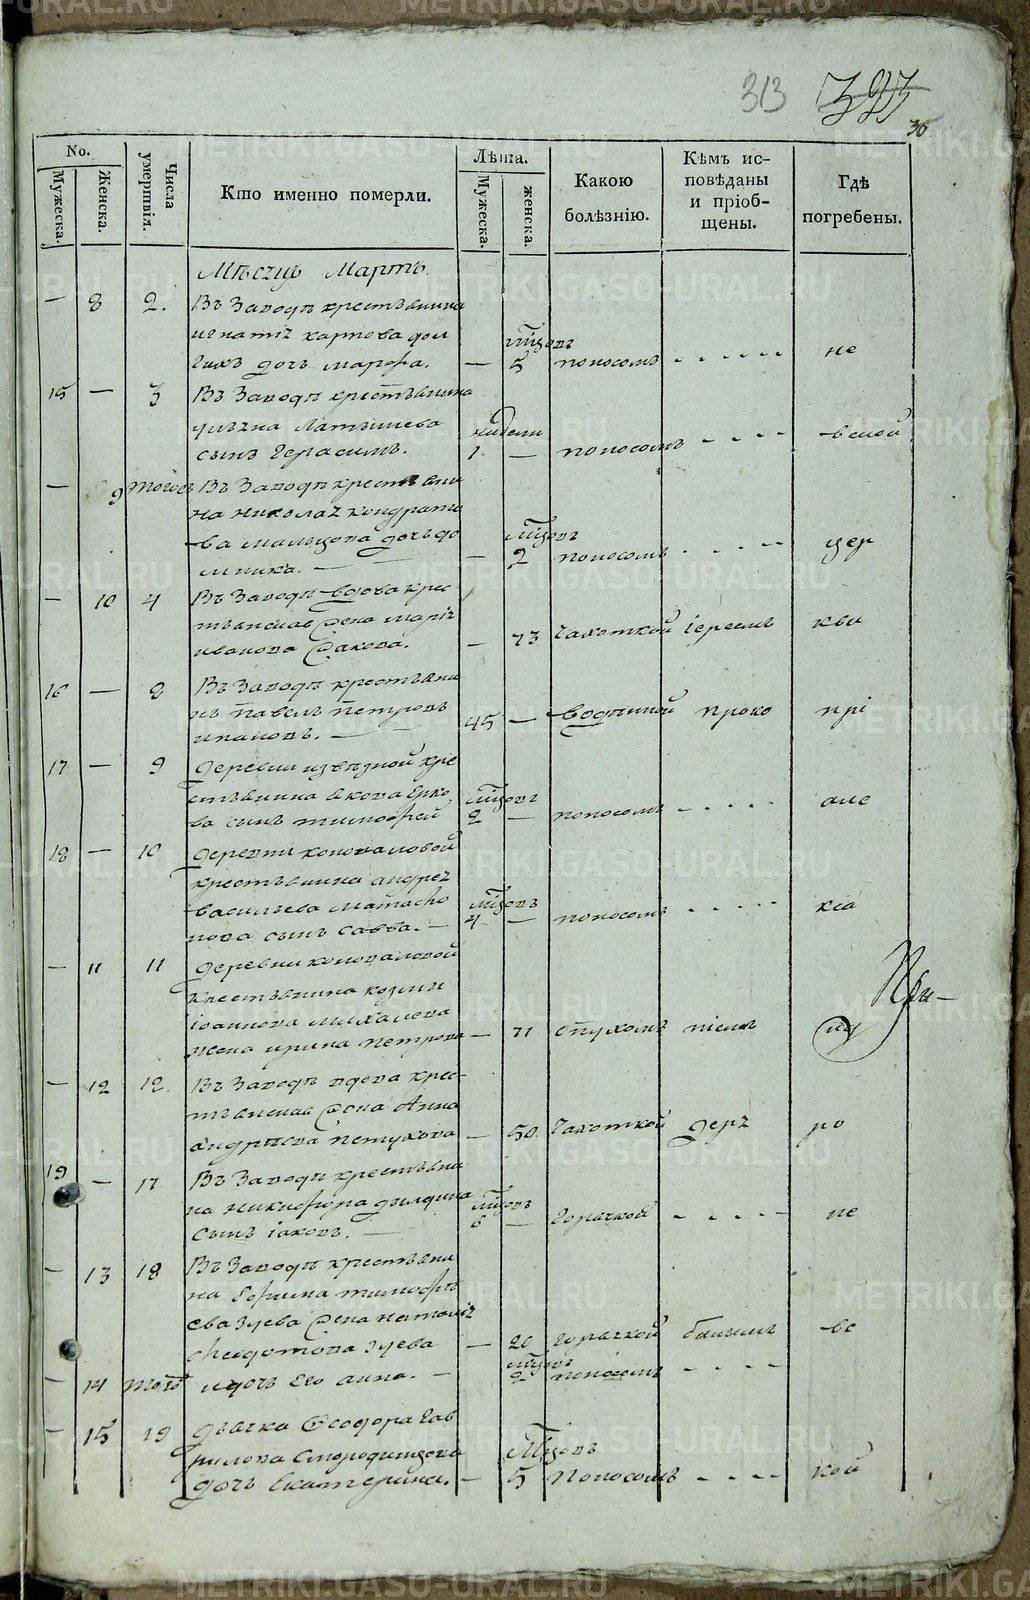 313 323
30
No.
Мужеска.
Женска.
Числа умертвія.
Кто именно померли.
Лѣта.
Мужеска.
женска.
Какою болѣзнію.
Кѣмъ ис-
повѣданы
и пріоб-
щены.
Гдѣ
погребены.
Мѣсяцъ Мартъ.
— 8 2. Въ Заводѣ крестьянина
игнатія карпова дол
гихъ дочь марфа. — мцовъ 5 поносомъ - - - - - - не
15 — 3 Въ Заводѣ крестьянина
Латышева
сынъ Герасимъ. недели 1. — поносомъ - - - - вской
— 9 тогожъ Въ Заводѣ крестьяни
на николая кондратье
ва мальцова дочь до
мника. — — мцовъ 2 поносомъ - - - - - цер
— 10 4 Въ Заводѣ вдова крес
тьянская жена марія
иванова . — 73 Чахоткой іереемъ кви
16 — 8 Въ Заводѣ крестьяни
нъ Павелъ Петровъ
ивановъ. — 45 — водяной проко прі
17 — 9 деревни крe
стьянина якова
ва сынъ тимофей мцовъ 2 — поносомъ - - - - - оле
18 — 10 деревни коноваловой
крестьянина андрея
васильева матафо
нова сынъ савва. — мцовъ 4 — поносомъ - - - - - кса
— 11 11 деревни коноваловой
крестьянина козмы
іоаннова михалева
жена ирина петрова — 71 опухомъ піемъ
При-
— 12 12. Въ Заводѣ вдова крес-
тьянская жена Анна
андрѣева петухова — 50. Чахоткой держ ро
19 — 17 Въ Заводѣ крестьяни
на никифора
сынъ іаковъ. — мцовъ 6 — горячкой - - - - - не
— 13 18 Въ Заводѣ крестьяни
на Ефима тимофѣ
ева Зуева жена наталія
феодотова Зуева — 20 горячкой во
— 14 тогожъ и дочь Его анна. — мцовъ 2 поносомъ - - - -
— 15 19 дьячка Феодора Гав
рилова Смородинцова
дочь Екатерина. — мцовъ 5 поносомъ - - - - кой
METRIKI.GASO-URAL.RU